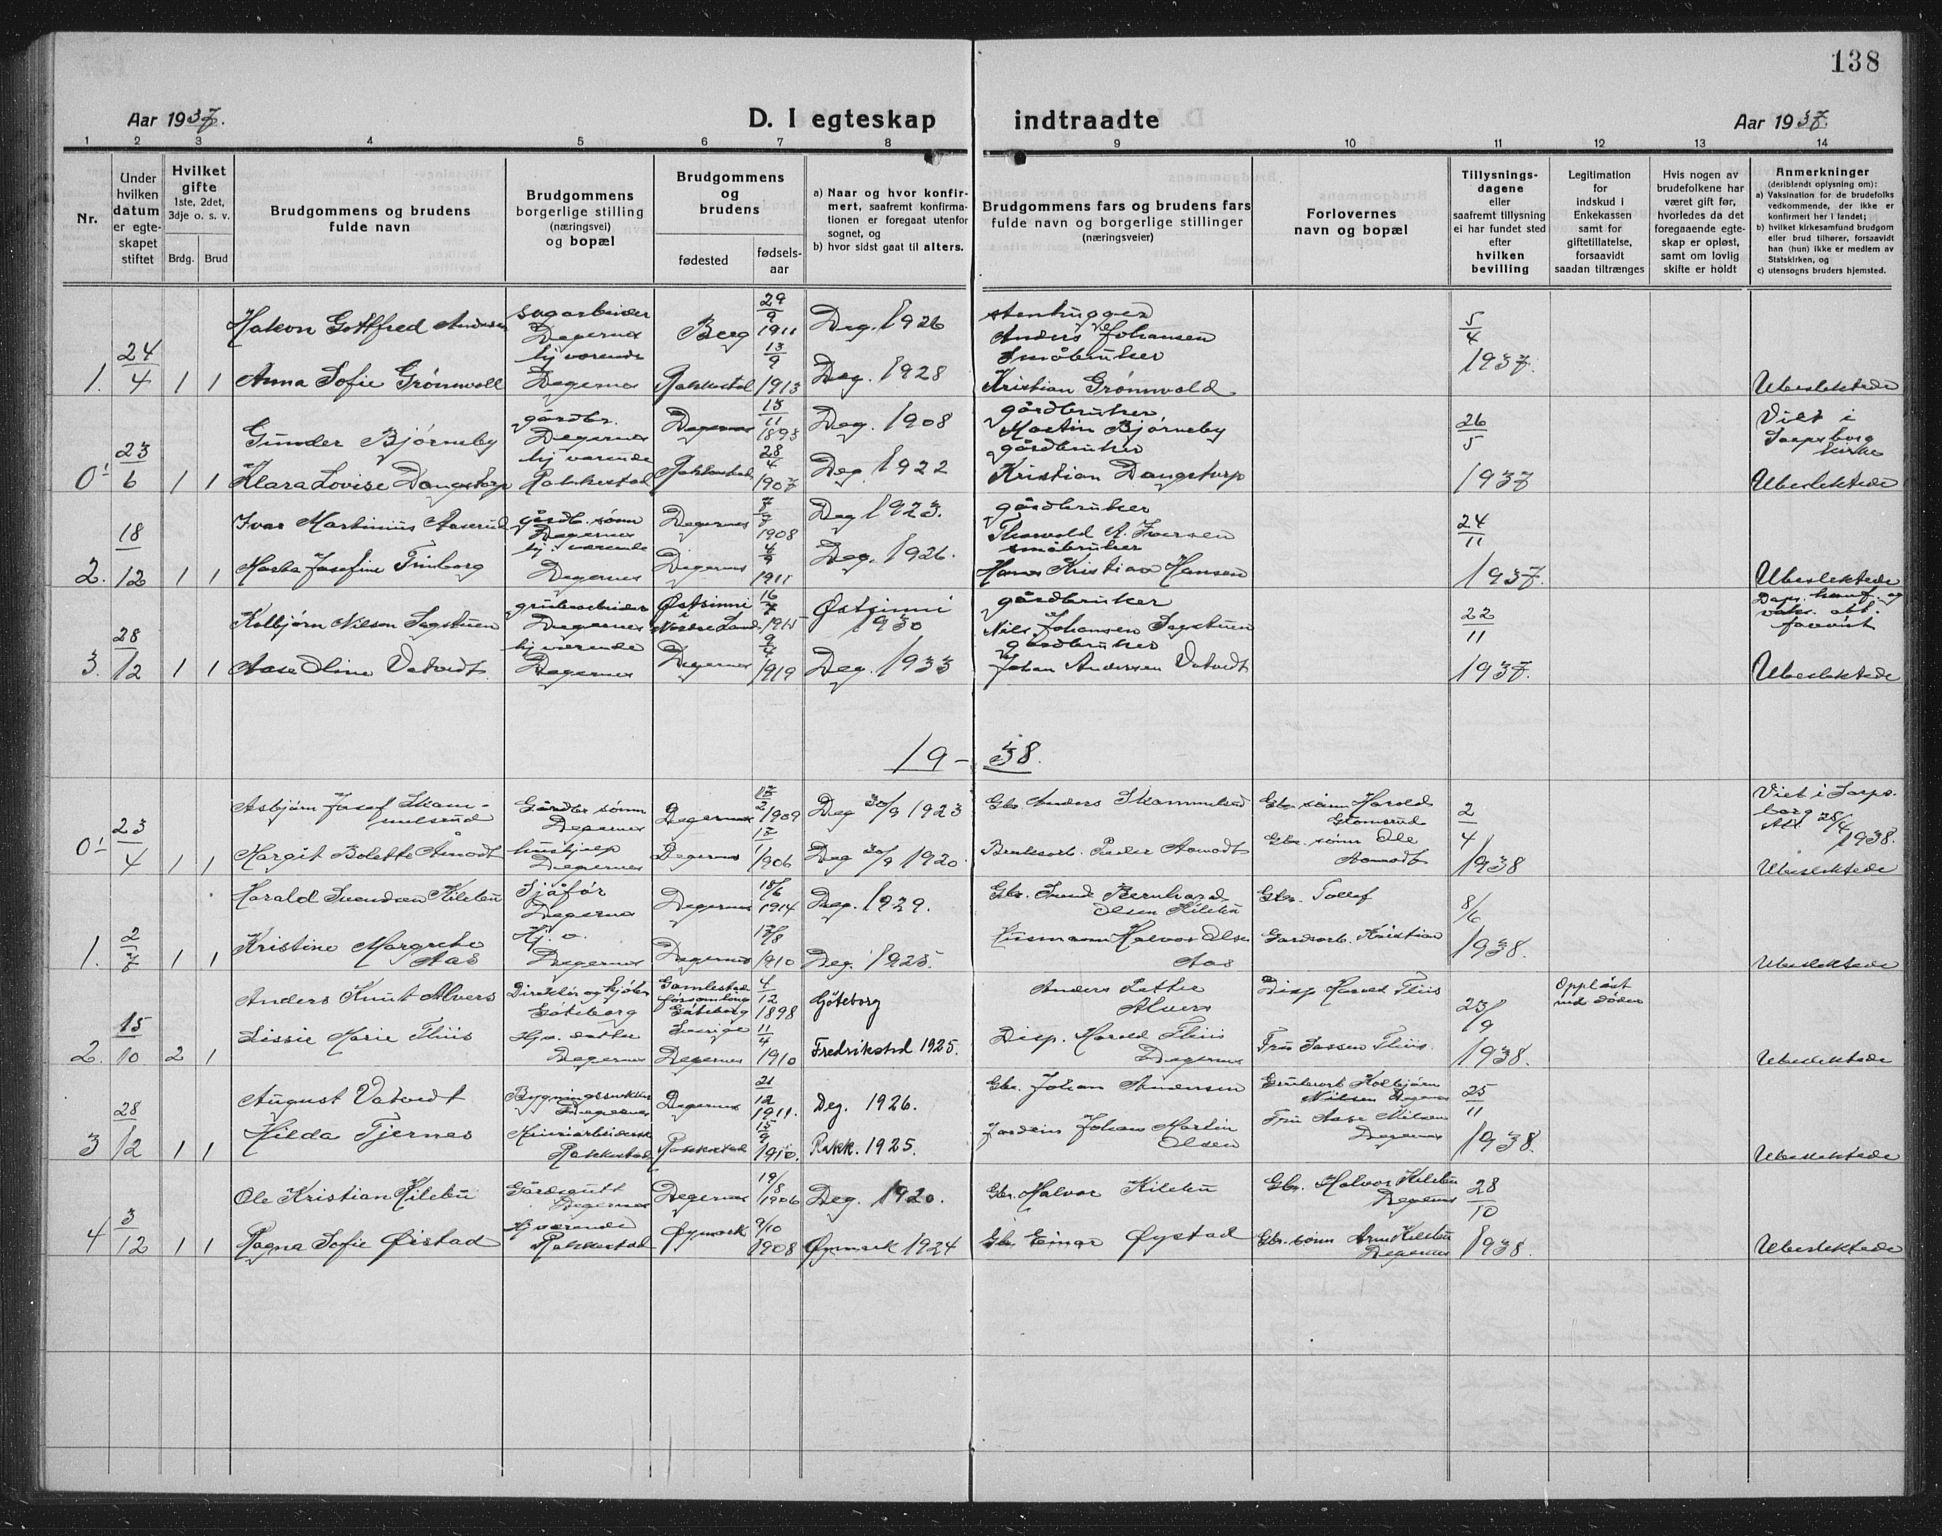 138
Aar 1937.
D. I egteskap indtraadte
Aar 1937
1 2 3 4 5 6 7 8 9 10 11 12 13 14
Nr.
Under hvilken datum er egteskapet stiftet
Hvilket gifte 1ste, 2det, 3dje o. s. v.
Brdg. Brud
Brudgommens og brudens fulde navn
Brudgommens borgerlige stilling (næringsvei) og bopæl
Brudgommens og brudens
fødested
fødsels-aar
a) Naar og hvor konfirmert, saafremt konfirmationen er foregaat utenfor sognet, og
b) hvor sidst gaat til alters.
Brudgommens fars og brudens fars fulde navn og borgerlige stillinger (næringsveier)
Forlovernes navn og bopæl
Tillysnings-dagene eller saafremt tillysning ei har fundet sted efter hvilken bevilling
Legitimation for indskud i Enkekassen samt for giftetillatelse, forsaavidt saadan tiltrænges
Hvis nogen av brudefolkene har været gift før, hvorledes da det foregaaende egteskap er opløst, samt om lovlig skifte er holdt
Anmerkninger (deriblandt oplysning om):
a) Vaksination for de brudefolks vedkommende, der ikke er konfirmert her i landet;
b) hvilket kirkesamfund brudgom eller brud tilhører, forsaavidt han (hun) ikke er medlem av Statskirken, og
c) utensogns bruders hjemsted.
1. 24/4 1 1
Hakon Gottfred Andersen sagarbeider Degernes Berg 29/9 1911 Deg. 1926 stenhugger Anders Johansen 5/4 1937.
Anna Sofie Grønvoll hj. værende Degernes Rakkestad 13/9 1913 Deg. 1928 Småbruker Kristian Grønvold Ubeslektede
0' 23/6 1 1
Gunder Bjørneby gårdbr. Degernes Degernes 13/11 1893 Deg. 1908 gårdbruker Martin Bjørneby 26/5 1937 Viet i Sarpsborg kirke
Klara Lovise Dangstorp hj værende Rakkestad Rakkestad 28/4 1907 Deg. 1922 gårdbruker Kristian Dangstorp Ubeslektede
2. 18/12 1 1
Ivar Martinius Aaserud gårdb. sønn Degernes Degernes 1908 Deg 1923. gårdbruker Thorvald A. Iversen 24/11 1937.
Marta Josefine Finborg hj. værende Degernes Degernes 4/9 1911 Deg. 1926. småbruker Hans Kristian Hansen Ubeslektede
3. 28/12 1 1
Kolbjørn Nilsen Sagstuen grubearbeider Degernes Østsinni Nordre Land 16/7 1915 Østsinni 1930 gårdbruker Nils Johansen Sagstuen 22/11 1937. Daps, konf. og vaks. att. forevist
Aase Oline Vatvedt hj værende Degernes Degernes 9/4 1919 Deg. 1933 gårdbruker Johan Andersen Vatvedt Ubeslektede
19-38.
0' 23/4 1 1
Asbjørn Josef Skammelsrud Gårdbr. sønn Degernes Degernes 17/2 1909 Deg 30/9 1923 Gbr. Anders Skammelsrud Gbr. sønn Harold Glomsrud 2/4 1938 Viet i Sarpsborg Att 28/4 1938.
Margit Bolette Åmodt hushjelp Degernes Degernes 17/1 1906 Deg 30/9 1920. Bruksarb. Peder Aamodt Gbr. sønn Ole Aamodt Ubeslektede
1. 2/7 1 1
Harald Svendsen Kilebu Sjåfør Degernes Degernes 18/6 1914 Deg. 1929. Gbr. Svend Bernhard Olsen Kilebu Gbr. Tollef 8/6 1938.
Kristine Margrethe Aas Hj. v. Degernes Degernes 17/8 1910 Deg. 1925. Husmann Halvor Olsen Aas Gardsarb. Kristian Ubeslektede
2. 15/10 2 1
Anders Knut Alvers Direktør og kjøbm Göteborg Gamlestad församling Göteborg Sverige 4/12 1898 Göteborg Anders Petter Alvers Disp Harold Thiis 23/9 1938. Oppløst ved døden
Lissie Marie Thiis Hj.v. datter Degernes Degernes 11/4 1910 Fredrikstad 1925. Disp. Harold Thiis Degernes Fru Thiis. Ubeslektede
3 28/12 1 1
August Vatvedt Bygningssnekker Degernes Degernes 21/12 1911. Deg. 1926. Gbr. Johan Andersen Grubearb Kolbjørn Nilsen Degernes 25/11 1938.
Hilda Tjernes Rakkestad Rakkestad 15/9 1910. Rakk. 1925. Johan Martin Olsen Fru Aase Nilsen Degernes Ubeslektede
4 3/12 1 1
Ole Kristian Kilebu Gårdsgutt Degernes Degernes 19/8 1906 Deg. 1920. Gbr. Halvor Kilebu Gbr. Halvor Kilebu Degernes 28/10 1938.
Ragna Sofie Øistad Hj værende Rakkestad Øymark 9/10 1908 Øymark 1924 Gbr Einar Øystad Gbr. sønn Arne Kilebu Degernes Ubeslektede